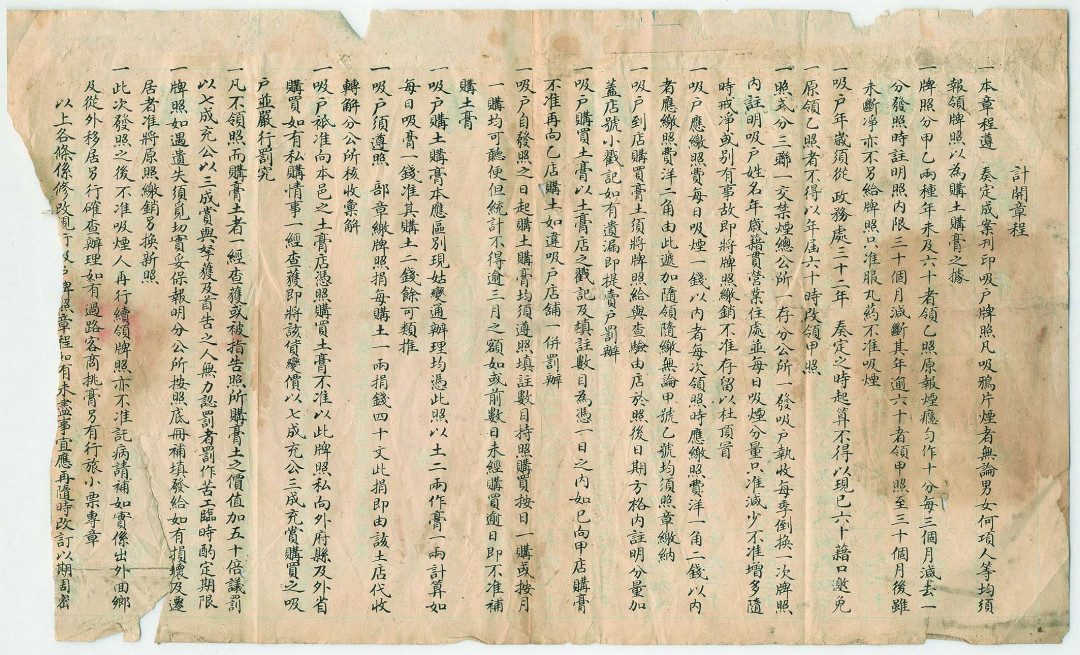 計開章程
一本章程遵 奏定成案刊印吸戶牌照凡吸鴉片煙者無論男女何項人等均須
報領牌照以為購土購膏之據
一牌照分甲乙兩種年未及六十者領乙照原報煙癮勻作十分每三個月減去一
分發照時註明照內限三十個月減斷其年逾六十者領甲照至三十個月後雖
未斷淨亦不另給牌照只准服丸約不准吸煙
一吸戶年歲須從 政務處三十二年 奏定之時起算不得以現已六十藉口邀免
一原領乙照者不得以年屆六十時改領甲照
一照式分三聯一交禁煙總公所一存分公所一發吸戶執收每季倒換一次牌照
內註明吸戶姓名年歲籍貫營業住處並每日吸煙分量只准減少不准增多隨
時戒淨或別有事故即將牌照繳銷不准存留以杜頂冒
一吸戶應繳照費每日吸煙一錢以內者每次領照時應繳照費洋一角二錢以內
者應繳照費洋二角由此遞加隨領隨繳無論甲號乙號均須照章繳納
一吸戶到店購買膏土須將牌照給與查驗由店於照後日期方格內註明分量加
蓋店號小戳記如有遺漏即提賣戶罰辦
一吸戶購買土膏以土膏店之戳記及填註數目為憑一日之內如已向甲店購膏
不准再向乙店購土如違吸戶店舖一併罰辦
一吸戶自發照之日起購土購膏均須遵照填註數目持照購買按日一購或按月
一購均可聽便但統計不得逾三月之額如或前數日未經購買逾日即不准補
購土膏
一吸戶購土購膏本應區別現姑變通辦理均憑此照以土二兩作膏一兩計算如
每日吸膏一錢准其購土二錢餘可類推
一吸戶須遵照 部章繳牌照捐每購土一兩捐錢四十文此捐即由該土店代收
轉解分公所核收彙解
一吸戶祇准向本邑之土膏店憑照購買土膏不准以此牌照私向外府縣及外省
購買如有私購情事一經查獲即將該貨變價以七成充公三成充賞購買之吸
戶並嚴行罰究
一凡不領照而購膏土者一經查獲或被指告照所購膏土之價值加五十倍議罰
以七成充公以三成賞與拏獲及首告之人無力認罰者罰作苦工臨時酌定期限
一牌照如遇遺失須覓切實妥保報明分公所按照底冊補填發給如有損壞及遷
居者准將原照繳銷另換新照
一此次發照之後不准吸煙人再行續領牌照亦不准託病請補如實係出外回鄉
及從外移居另行確查辦理如有過路客商挑膏另有行旅小票專章
以上各條係修改現行吸戶牌照章程如有未盡事宜應再隨時改訂以期周密